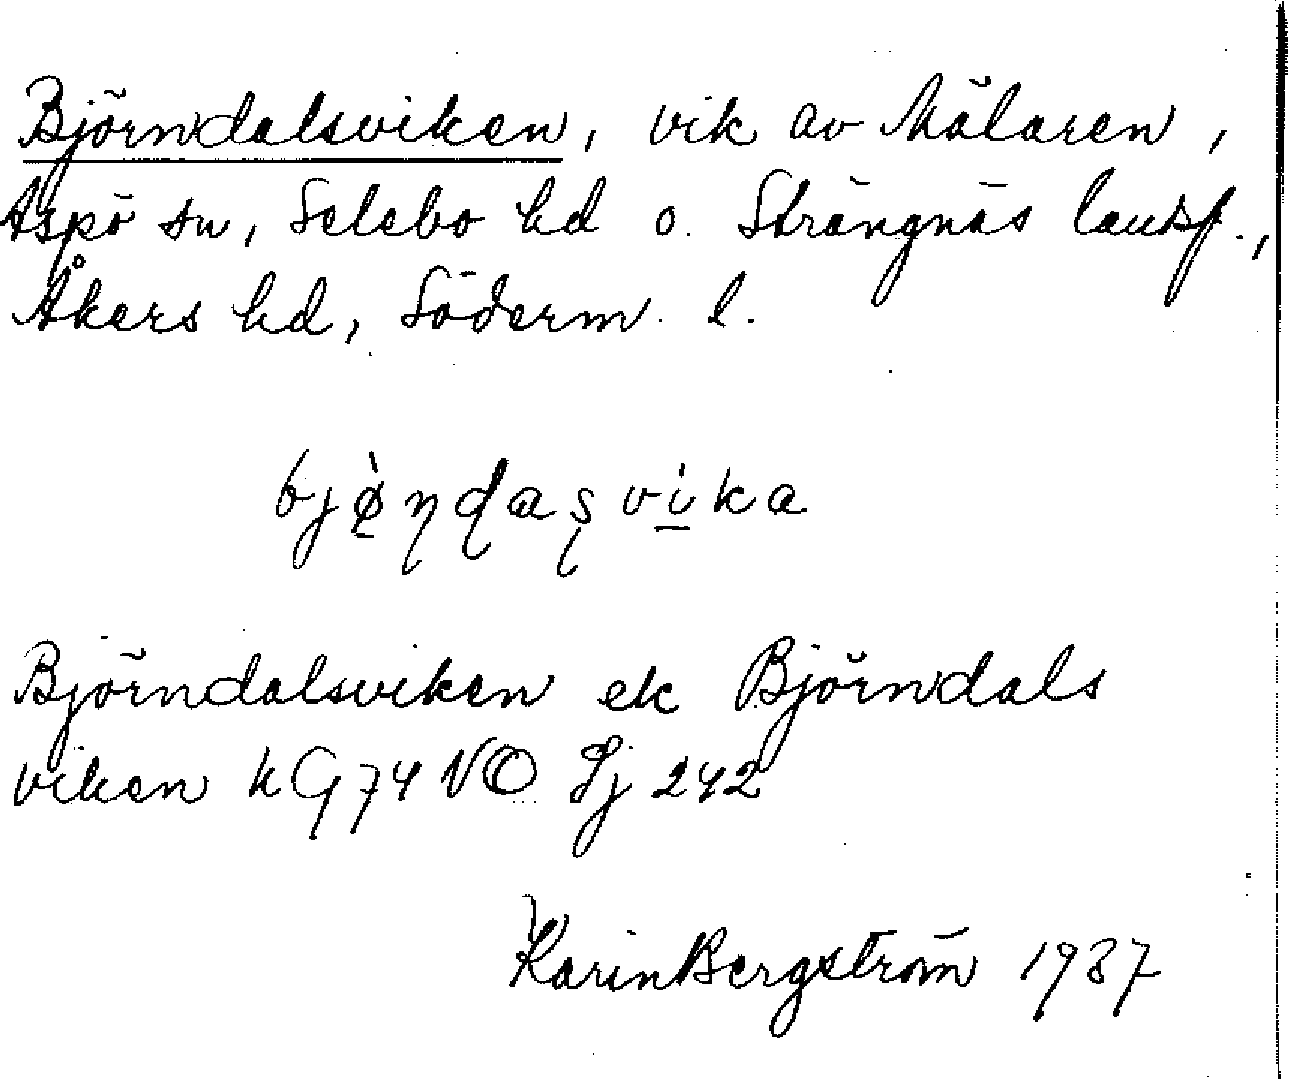 Björndalsviken, vik av Mälaren,
Aspö sn, Selebo hd o. Strängnäs landsf.,
Åkers hd, Söderm. l.
bjø̀ṇḍaṣvi̍ka
Björndalsviken ek Björndals
viken k G 74 NO Sj 242
Karin Bergström 1937